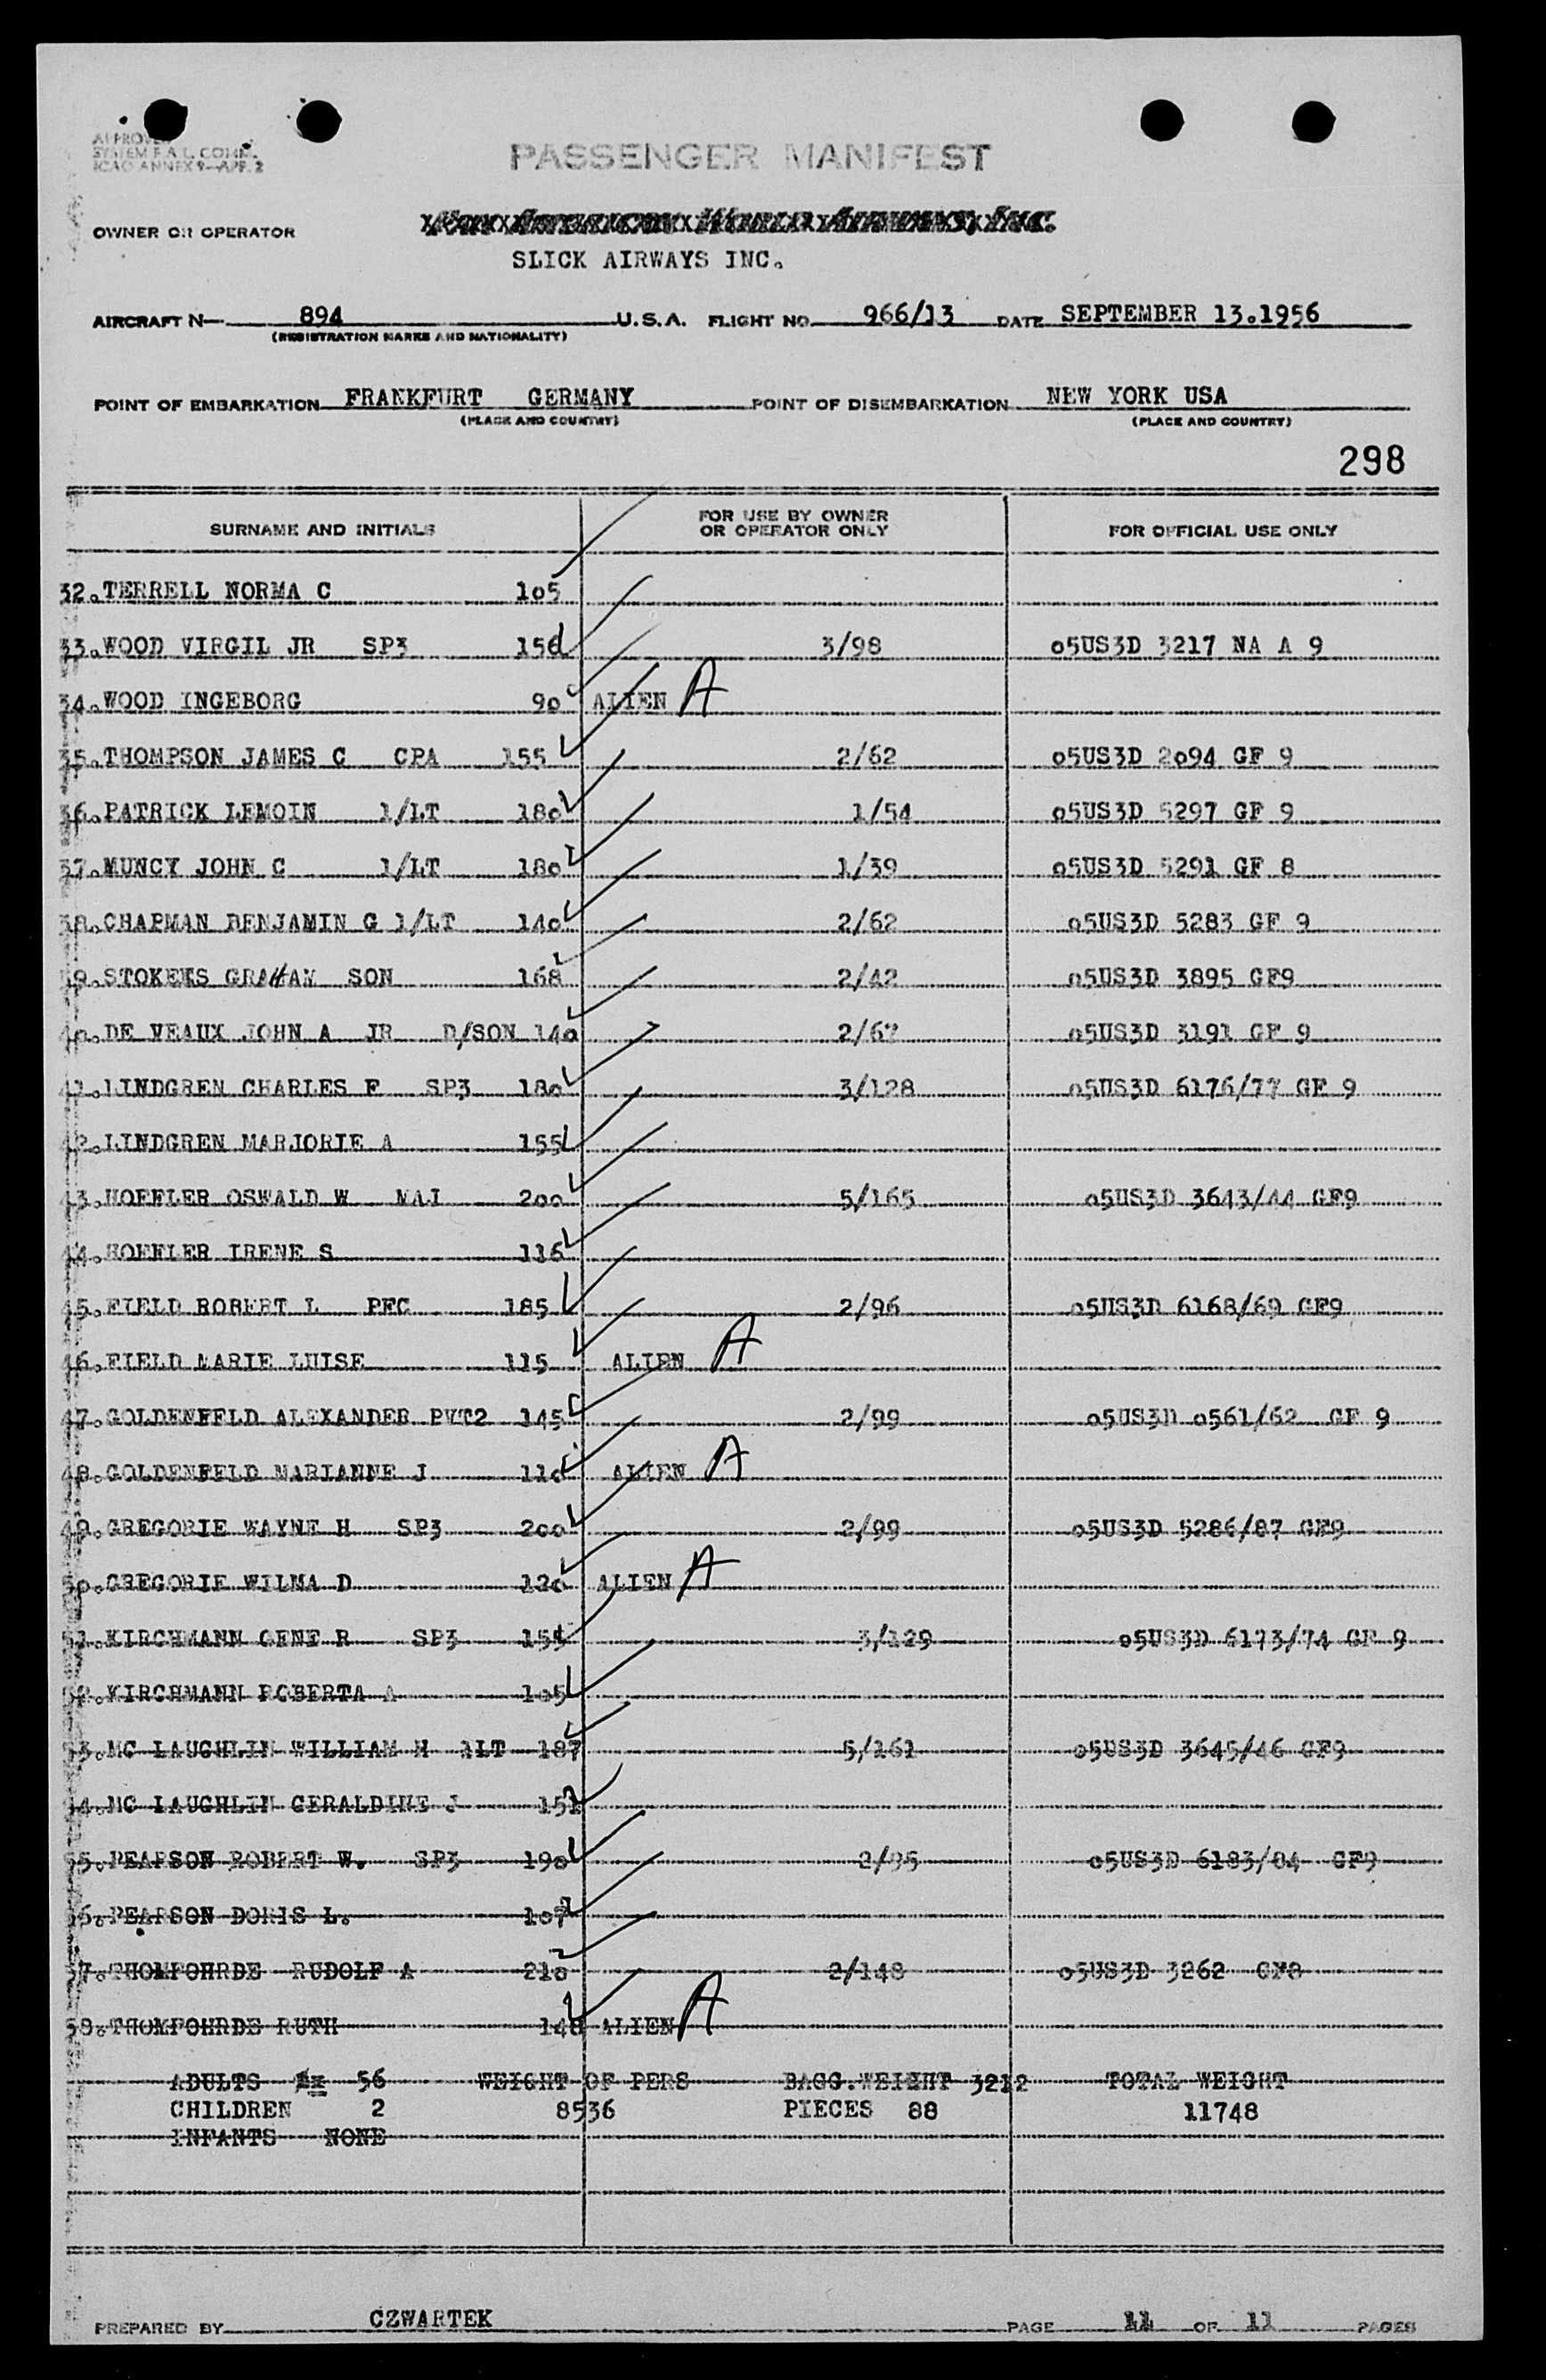 APPROVED
SYSTEM F.A.L. COMM.
ICAO ANNEX 9—APP. 2
PASSENGER MANIFEST
OWNER OR OPERATOR
SLICK AIRWAYS INC.
AIRCRAFT N— 894 U.S.A. FLIGHT NO. 966/13 DATE SEPTEMBER 13.1956
(REGISTRATION MARKS AND NATIONALITY)
POINT OF EMBARKATION FRANKFURT GERMANY POINT OF DISEMBARKATION NEW YORK USA
(PLACE AND COUNTRY) (PLACE AND COUNTRY)
298
SURNAME AND INITIALS FOR USE BY OWNER OR OPERATOR ONLY FOR OFFICIAL USE ONLY
32.TERRELL NORMA C 105
33.WOOD VIRGIL JR SP3 156 3/98 o5US3D 3217 NA A 9
34.WOOD INGEBORG 90 ALIEN A
35.THOMPSON JAMES C CPA 155 2/62 o5US3D 2o94 GF 9
36.PATRICK LEMOIN 1/LT 180 1/54 o5US3D 5297 GF 9
37.MUNCY JOHN C 1/LT 180 1/39 o5US3D 5291 GF 8
38.CHAPMAN BENJAMIN G 1/LT 140 2/62 o5US3D 5283 GF 9
39.STOKENS GRAHAM SON 168 2/42 o5US3D 3895 GF9
40.DE VEAUX JOHN A JR D/SON 140 2/67 o5US3D 3191 GF 9
41.LINDGREN CHARLES F SP3 180 3/128 o5US3D 6176/77 GF 9
42.LINDGREN MARJORIE A 155
43.HOFFLER OSWALD W MAJ 200 5/165 o5US3D 3643/44 GF9
44.HOFFLER IRENE S 116
45.FIELD ROBERT L PFC 185 2/96 o5US3D 6168/69 GF9
46.FIELD MARIE LUISE 115 ALIEN A
47.GOLDENFELD ALEXANDER PVT2 145 2/99 o5US3D o561/62 GF 9
48.GOLDENFELD MARIANNE J 110 ALIEN A
49.GREGORIE WAYNE H SP3 200 2/99 o5US3D 5286/87 GF9
50.GREGORIE WILMA D 120 ALIEN A
51.KIRCHMANN GENE R SP3 154 3/129 o5US3D 6173/74 GF 9
52.KIRCHMANN ROBERTA A 105
53.MC LAUGHLIN WILLIAM H 1LT 187 5/161 o5US3D 3645/46 GF9
54.MC LAUGHLIN GERALDINE J 151
55.PEARSON ROBERT W. SP3 190 2/95 o5US3D 6183/84 GF9
56.PEARSON DORIS L. 107
57.THOMFOHRDE RUDOLF A 210 2/148 o5US3D 3262 GF8
58.THOMFOHRDE RUTH 148 ALIEN A
ADULTS 56 WEIGHT OF PERS BAGG.WEIGHT 3212 TOTAL WEIGHT
CHILDREN 2 8536 PIECES 88 11748
INFANTS NONE
PREPARED BY CZWARTEK PAGE 11 OF 11 PAGES